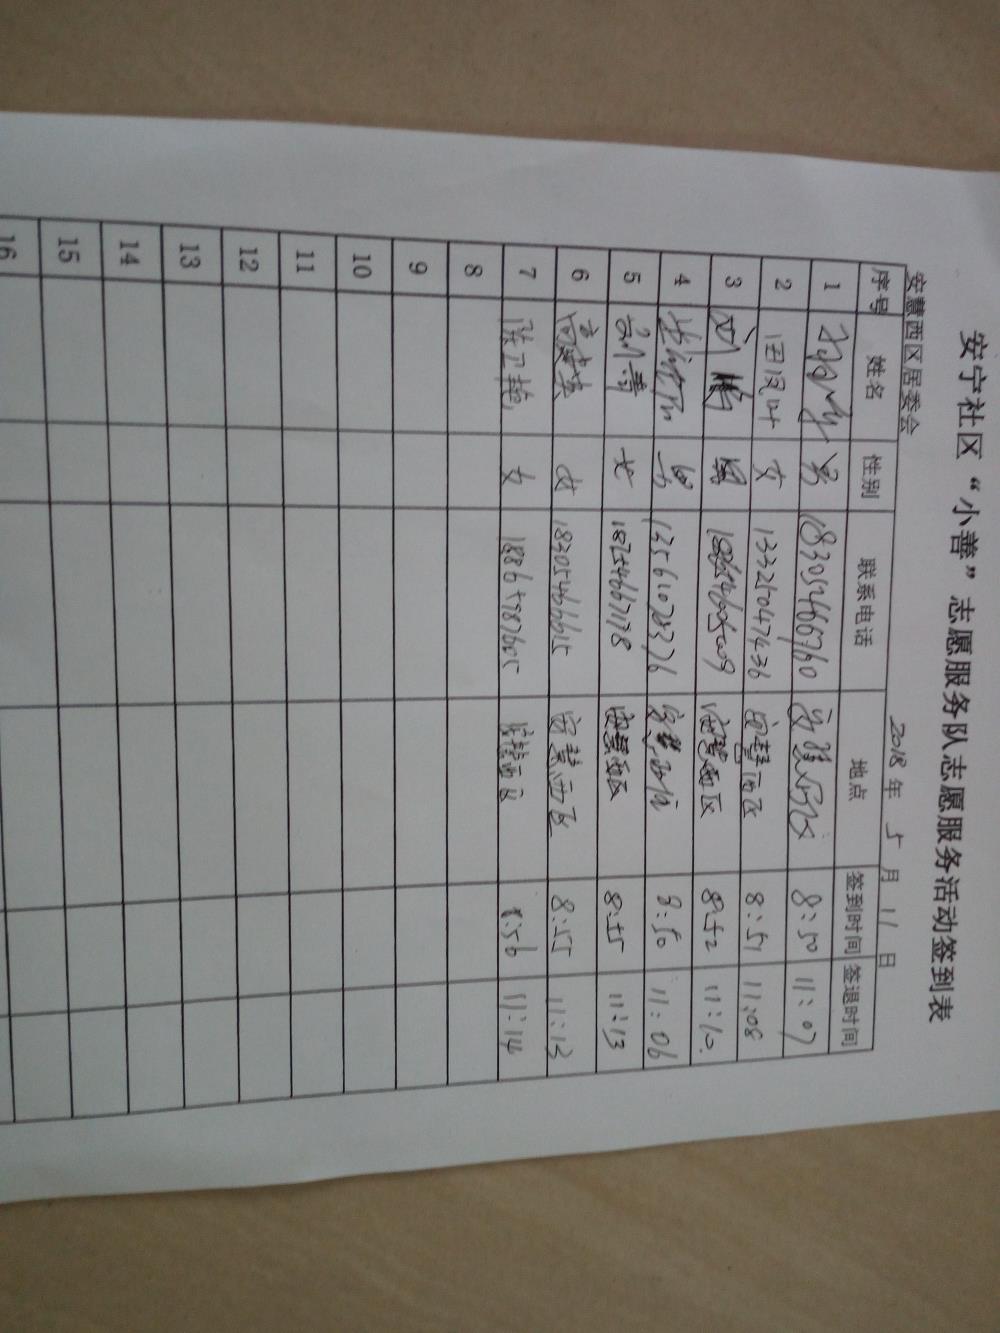 安宁社区“小善”志愿服务队志愿服务活动签到表
安慧西区居委会 2018年 5月 11日
序号 姓名 性别 联系电话 地点 签到时间 签退时间
1 男 18305466760 8:50 11:07
2 田凤叶 女 13325047436 安慧西区 8:51 11:08
3 刘鹏 男 安慧西区 8:52 11:10.
4 男 13561028376 安慧西区 8:50 11:06
5 女 18754667178 安慧西区 8:55 11:13
6 高建英 女 18305466615 安慧西区 8:55 11:13
7 陈卫艳 女 安慧西区 8:56 11:14
8
9
10
11
12
13
14
15
16